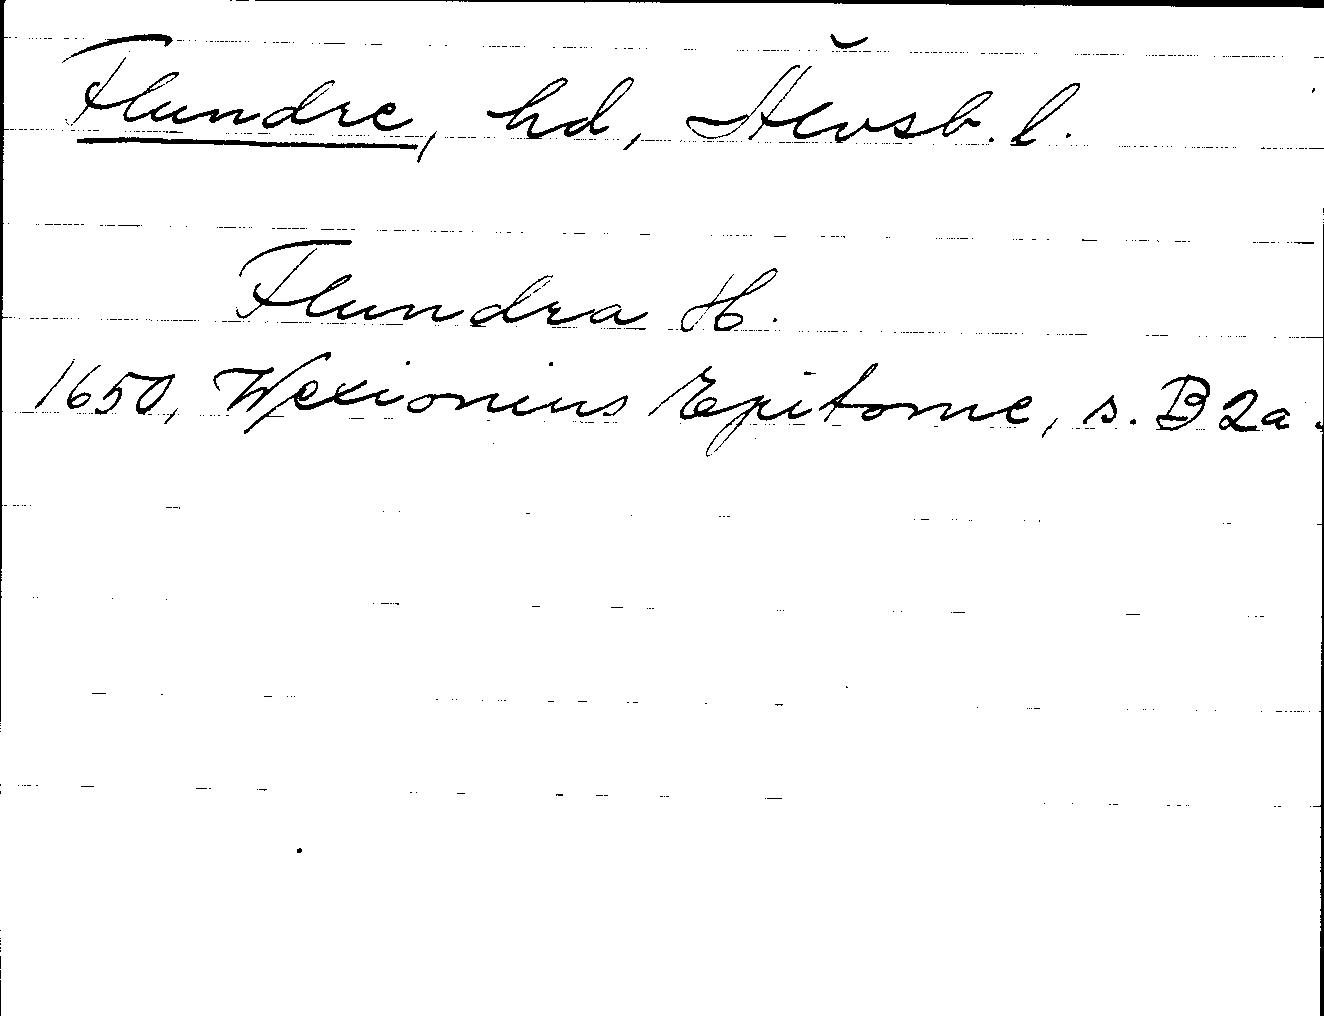 Flundre, hd, Älvsb. l.
Flundra H.
1650, Wexionius Epitome, s. B2a.